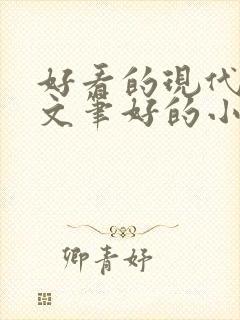 好看的现代
文笔好的小
卿青妤